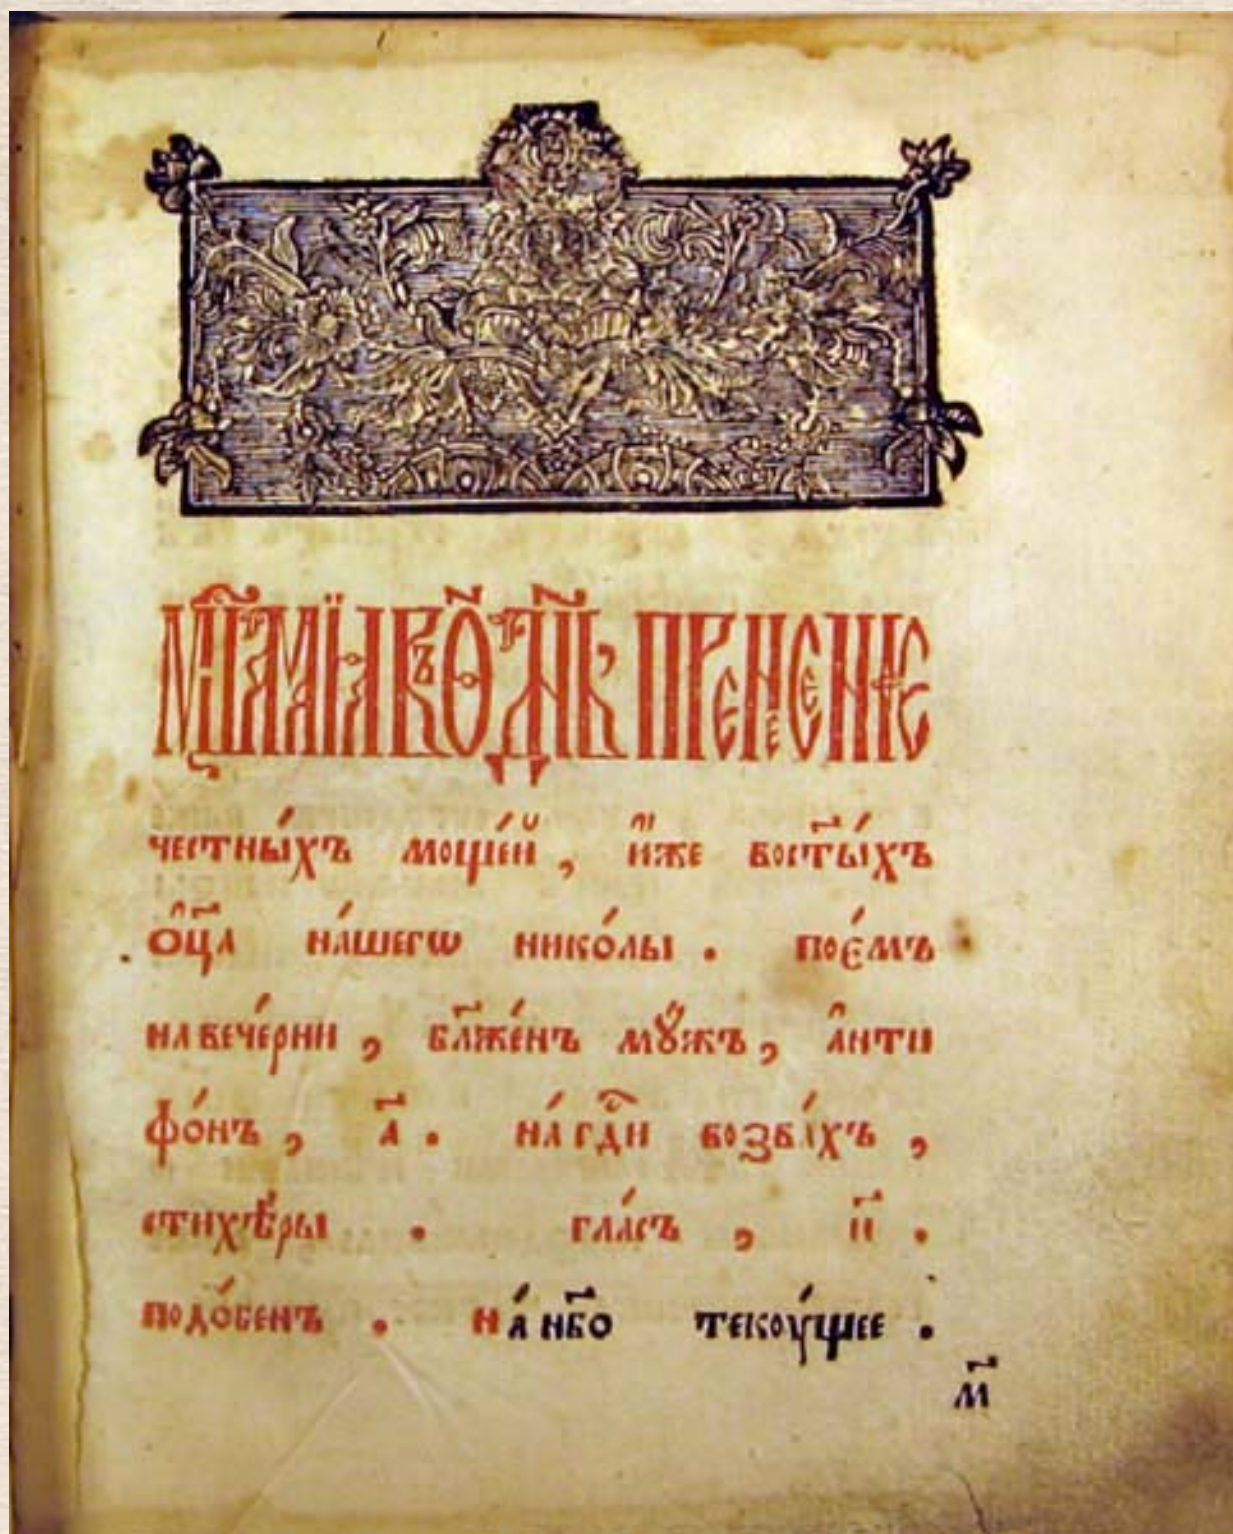 мц҃а маїа въ ѳ҃ д҃нь пренесенїе
честны́хъ моще́й , и҆́же во ст҃ы́хъ
ѻ҆ц҃а на́шегѡ нико́лы . пое́мъ
на вече́рни , бл҃же́нъ му́жъ , а҆нти
фо́нъ , а҃ . на́ гдⷭ҇и возва́хъ ,
стихѣ́ры . гла́съ , и҃ .
подо́бенъ . на́ нб҃о текꙋ́щее .
м҃